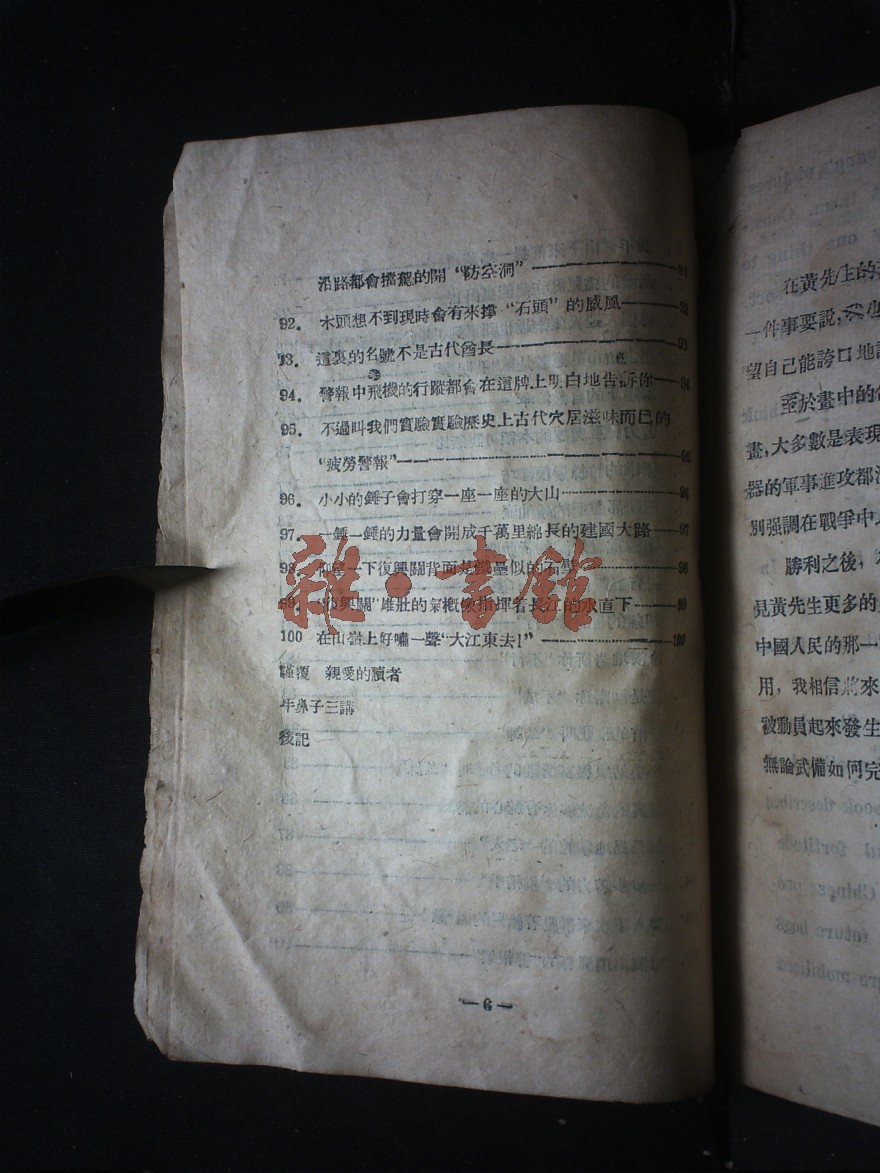 沿路都會擋駕的開“防空洞”——91
92. 木頭想不到現時會有來撑“石頭”的威風——92
93. 這裏的名號不是古代酋長——93
94. 警報中飛機的行蹤都會在這牌上明白地告訴你——94
95. 不過叫我們實驗實驗歷史上古代穴居滋味而已的
“疲勞警報”——95
96. 小小的錘子會打穿一座一座的大山——96
97. 一錘一錘的力量會開成千萬里綿長的建國大路——97
98. 仰望一下復興關背面 似的石壁——98
99. “復興關”雄壯的氣概像指揮着長江的水直下——99
100 在山巒上好嘯一聲“大江東去！”——100
謹覆 親愛的讀者
牛鼻子三講
後記
—6—
雜·書館
在黃先生的
一件事要說，
望自己能誇口地
至於畫中的
畫，大多數是表現
器的軍事進攻都
別强調在戰爭中
勝利之後，
見黃先生更多的
中國人民的那一
用，我相信將來
被動員起來發生
無論武備如何完